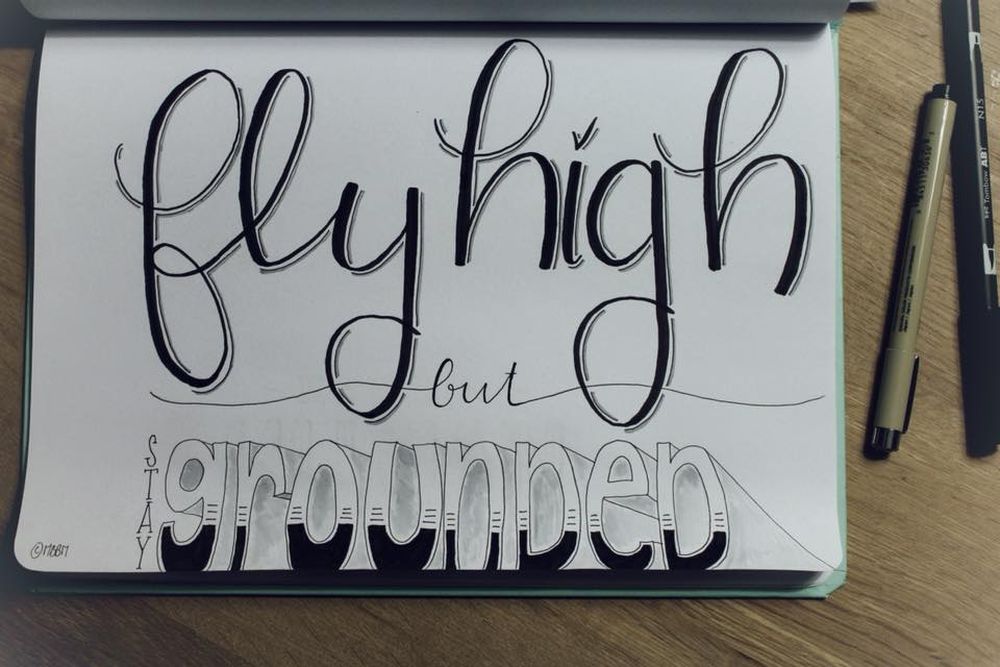 fly high
but
STAY
grounDeD
©MBBM
Tombow ABT N15